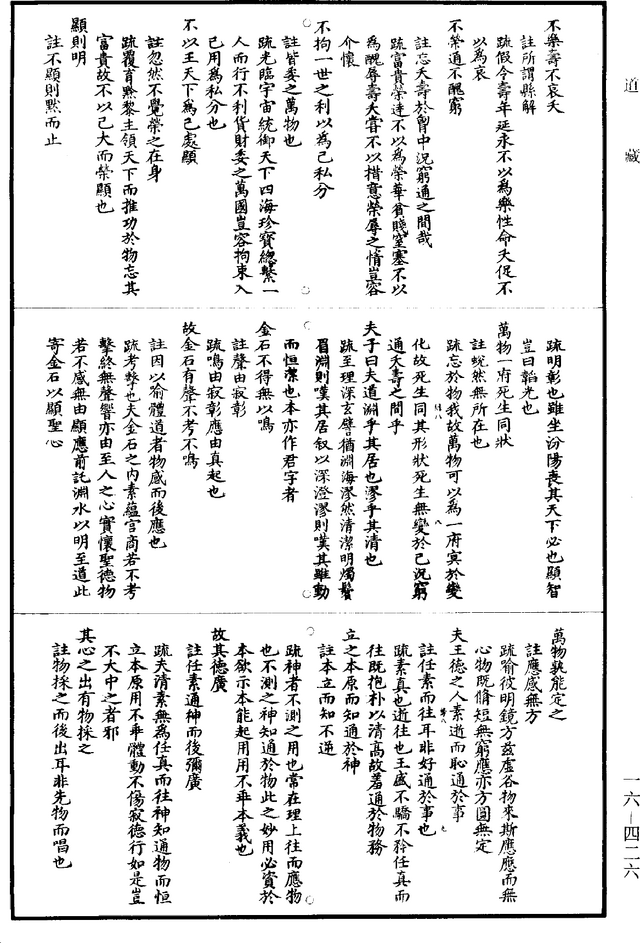 道藏
不樂壽不哀夭
註所謂縣解
疏假令壽年延永不以為樂性命夭促不
以為哀
不榮通不醜窮
註忘夭壽於胷中況窮通之間哉
疏富貴榮達不以為榮華貧賤窒塞不以
為醜辱壽夭嘗不以措意榮辱之情豈容
介懷
不拘一世之利以為己私分
註皆委之萬物也
疏光臨宇宙統御天下四海珍寶總繫一
人而行不利貨財委之萬國豈容拘束入
己用為私分也
不以王天下為己處顯
註忽然不覺榮之在身
疏覆育黔黎主領天下而推功於物忘其
富貴故不以己大而榮顯也
顯則明
註不顯則默而止
疏明彰也雖坐汾陽喪其天下必也顯智
豈曰韜光也
萬物一府死生同狀
註蛻然無所在也
疏忘於物我故萬物可以為一府冥於變
化故死生同其形狀死生無變於己況窮
通夭壽之間乎
夫子曰夫道淵乎其居也漻乎其清也
疏至理深玄譬猶淵海漻然清潔明燭鬚
眉淵則嘆其居寂以深澄漻則嘆其雖動
而恒潔也本亦作君字者
金石不得無以鳴
註聲由寂彰
疏鳴由寂彰應由真起也
故金石有聲不考不鳴
註因以喻體道者物感而後應也
疏考擊也夫金石之內素蘊宮商若不考
擊終無聲響亦由至人之心實懷聖德物
若不感無由顯應前託淵水以明至道此
寄金石以顯聖心
萬物孰能定之
註應感無方
疏喻彼明鏡方茲虛谷物來斯應應而無
心物既脩短無窮應亦方圓無定
夫王德之人素逝而恥通於事
註任素而往耳非好通於事也
疏素真也逝往也王盛不驕不矜任真而
往既抱朴以清高故羞通於物務
立之本原而知通於神
註本立而知不逆
疏神者不測之用也常在理上往而應物
也不測之神知通於物此之妙用必資於
本欲示本能起用用不乖本義也
故其德廣
註任素通神而後彌廣
疏夫清素無為任真而往神知通物而恒
立本原用不乖體動不傷寂德行如是豈
不大中之者邪
其心之出有物採之
註物採之而後出耳非先物而唱也
一六—四二六